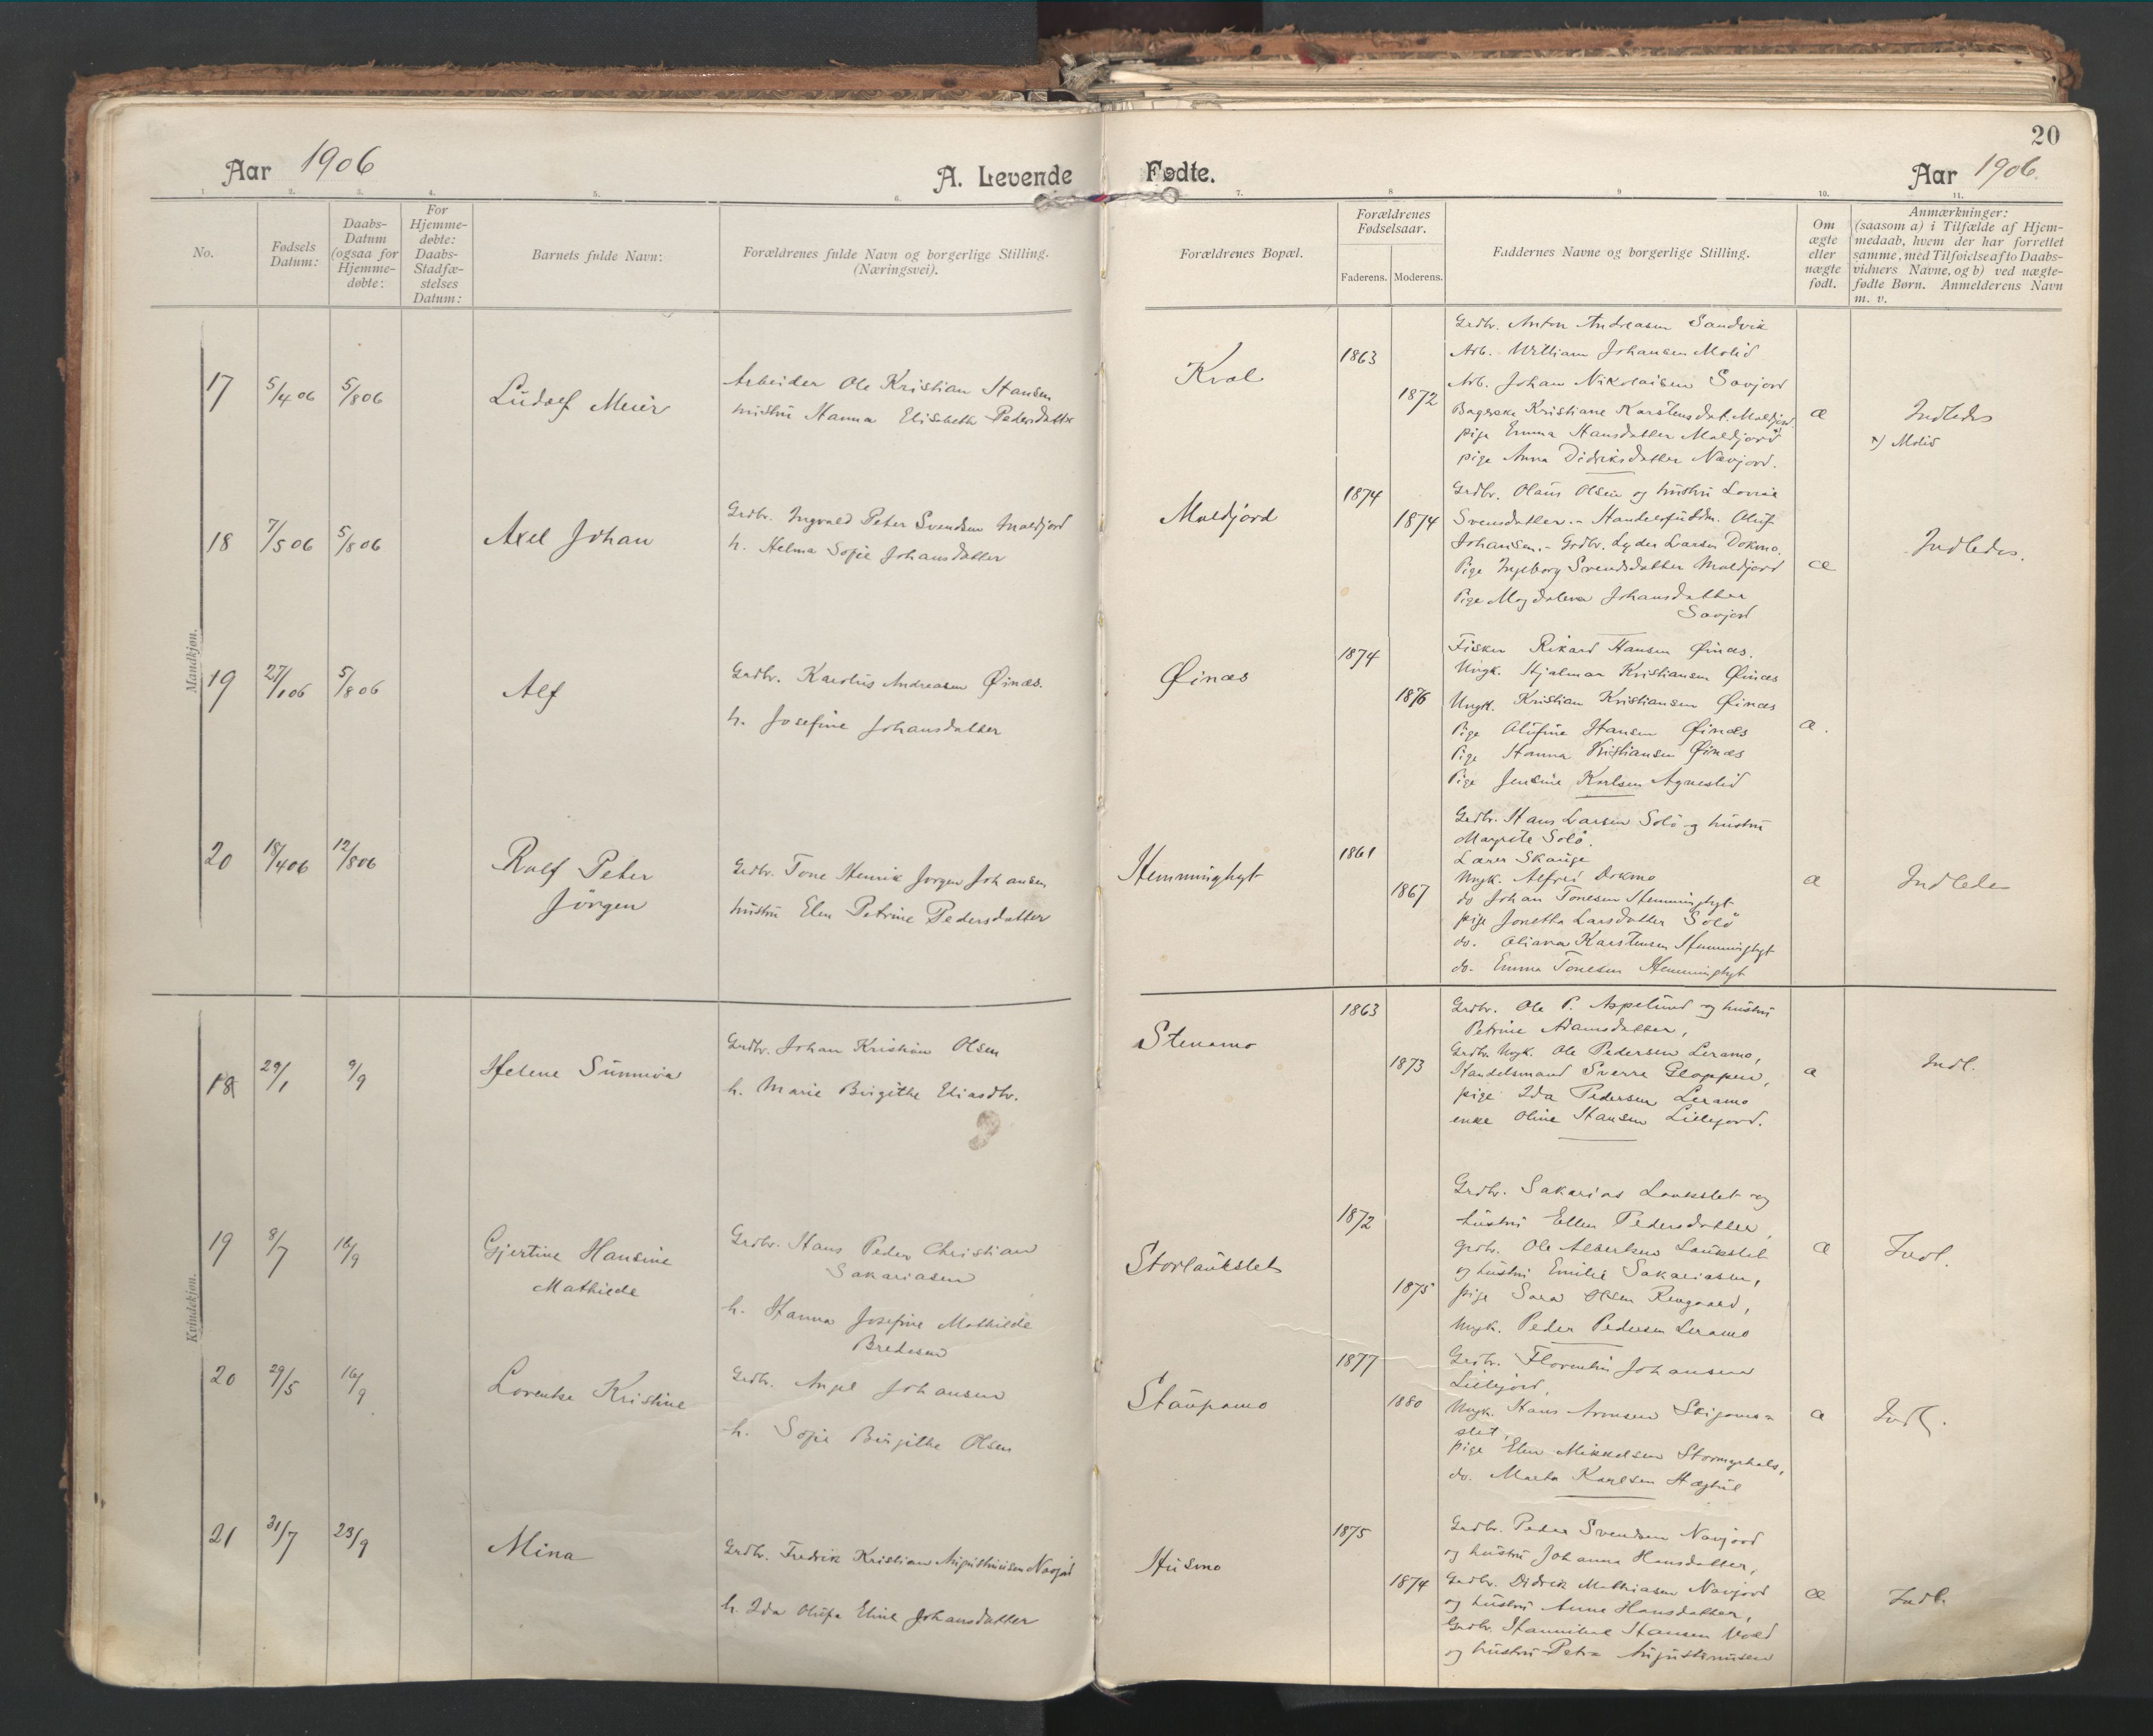 20
Aar 1906
A. Levende Fødte.
Aar 1906.
1. 2. 3. 4. 5. 6. 7. 8 9 10. 11.
No.
Fødsels Datum:
Daabs-Datum (ogsaa for Hjemme-døbte:
For Hjemme-døbte: Daabs-Stadfæ-stelses Datum:
Barnets fulde Navn:
Forældrenes fulde Navn og borgerlige Stilling. (Næringsvei).
Forældrenes Bopæl.
Forældrenes Fødselsaar.
Faderens. Moderens.
Faddernes Navne og borgerlige Stilling.
Om ægte eller uægte født.
Anmærkninger: (saasom a) i Tilfælde af Hjem-medaab, hvem der har forrettet samme, med Tilføielse af to Daabs-vidners Navne, og b) ved uægte-fødte Børn. Anmelderens Navn m. v.
Mandkjøn.
17 5/4 06 5/8 06 Ludolf Meier
Arbeider Ole Kristian Hansen
hustru Hanna Elisabeth Pedersdatter
Kval
1863
1872
Grdbr. Anton Andreasen Sandvik
Arb. William Johansen Molid
Arb. Johan Nikolaisen Savjord
Kristiane Karstensdat. Maldjord
pige Emma Hansdatter Maldjord x)
pige Anna Didriksdatter Navjord.
æ
Indledes
x) Molid
18 7/5 06 5/8 06 Axel Johan
Grdbr. Ingvald Peter Svendsen Maldjord
h. Helma Sofie Johansdatter
Maldjord
1874
1874
Grdbr. Olaus Olsen og hustru Lovise
Svensdatter. - Handelsfuldm. Oluf
Johansen. - Grdbr. Lyder Larsen Dokmo.
Pige Ingeborg Svendsdatter Maldjord
Pige Magdalena Johansdatter
Savjord
æ
Indledes.
19 27/1 06 5/8 06 Alf
Grdbr. Karolus Andreasen Øinæs.
h. Josefine Johansdatter
Øinæs
1874
1876
Fisker Rikard Hansen Øinæs.
Ungk. Hjalmar Kristiansen Øinæs
Ungk. Kristian Kristiansen Øinæs
Pige Olufine Hansen Øinæs
Pige Hanna Kristiansen Øinæs
Pige Jensine Karlsen Agneslid
æ.
20 18/4 06 12/8 06 Rolf Peter
Jörgen
Grdbr. Tone Henrik Jørgen Johansen
hustru Elen Petrine Pedersdatter
Hemminghyt
1861
1867
Grdbr. Hans Larsen Solö og hustru
Margrete Solö.
Lærer Skauge
Ungk. Alfred Dokmo
do Johan Tonesen Hemminghyt
pige Jonetta Larsdatter Solö
do. Oliana Karstensen Hemminghyt
do. Emma Tonesen Hemminghyt
æ
Indledes
Kvindekjøn.
18 29/1 9/9 Helene Sunniva
Grdbr. Johan Kristian Olsen
h. Marie Birgithe Eliasdtr.
Stenamo
1863
1873
Grdbr. Ole P. Aspelund og hustru
Petrine Adamsdatter,
Grdbr. Ungk. Ole Pedersen Leramo,
Handelsmand Sverre Gloppen,
pige Ida Pedersen Leramo
enke Oline Hansen Lillejord.
æ
Indl.
19 8/7 16/9 Gjertine Hansine
Mathilde
Grdbr. Hans Peder Christian
Sakariasen
h. Hanna Josefine Mathilde
Bredesen
Storlaukslet
1872
1875
Grdbr. Sakarias Laukslet og
hustru Ellen Pedersdatter,
grdbr. Ole Albertsen Laukslet
og hustru Emilie Sakariasen,
pige Sara Olsen Rengaard,
Ungk. Peder Pedersen Leramo
æ
Indl.
20 29/5 16/9 Lorentse Kristine
Grdbr. Angel Johansen
h. Sofie Birgithe Olsen
Staupamo
1877
1880
Grdbr. Florentin Johansen
Lillejord,
Ungk. Hans Aronsen
slet,
pige Elen Mikkelsen
do. Marta Karlsen
æ
Indl.
21 31/7 23/9 Mina
Grdbr. Fredrik Kristian Augustinusen Navjord
h. Ida Olufa Eline Johansdatter
Husmo
1875
1874
Grdbr. Peder Svendsen Navjord
og hustru Johanna Hansdatter,
Grdbr. Didrik Mathiasen Navjord
og hustru Anne Hansdatter,
Grdbr. Hannibal Hansen Vold
og hustru Petra Augustinusen
æ
Indl.